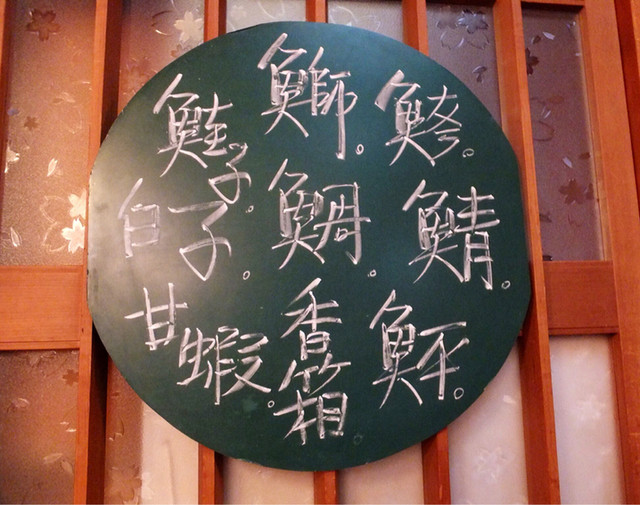 鮬。
鯖。
鮃。
鰤。
香箱
鮭子。
白子。
甘蝦。